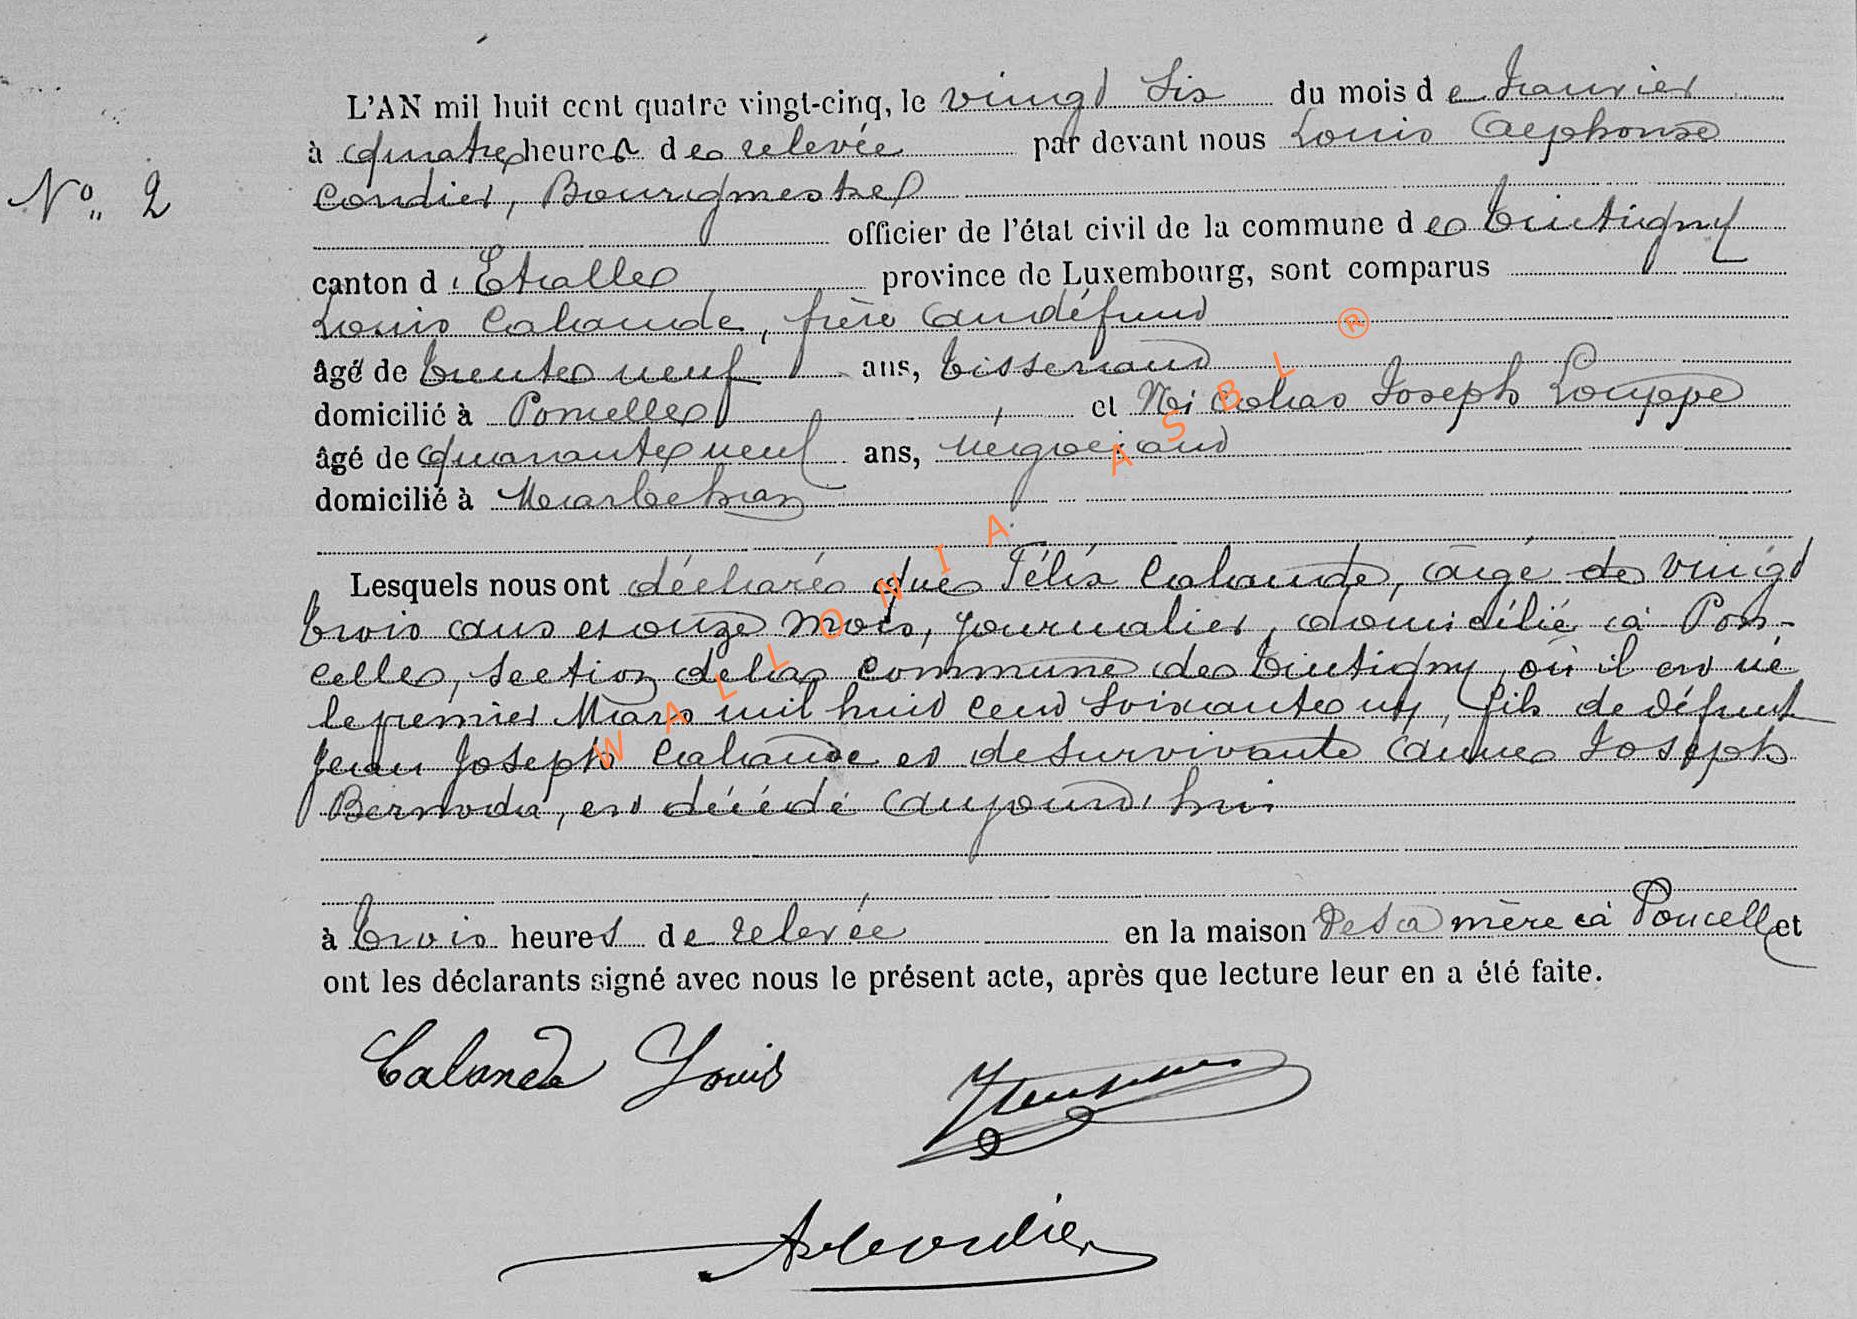 L'AN mil huit cent quatre vingt-cinq, le vingt six du mois de Janvier
à quatre heures de relevée par devant nous Louis Alphonse
Cordier, Bourgmestre
N° 2
officier de l'état civil de la commune de Tintigny
canton d'Etalle province de Luxembourg, sont comparus
Louis Calande, frère au défunt
âgé de trente neuf ans, tisserand
domicilié à Poncelle, et Nicolas Joseph Louppe
âgé de quarante neuf ans, négociant
domicilié à Marbehan
Lesquels nous ont déclaré que Félix Calande, âgé de vingt
trois ans et onze mois, journalier, domicilié à Pon-
celle, section de la commune de Tintigny, où il est né
le premier Mars mil huit cent soixante un, fils de défunt
Jean Joseph Calande et de survivante Anne Joseph
est décédé aujourd'hui
à trois heures de relevée en la maison de sa mère à Poncelle et
ont les déclarants signé avec nous le présent acte, après que lecture leur en a été faite.
Calande Louis
A Cordier
WALLONIA ASBL ®